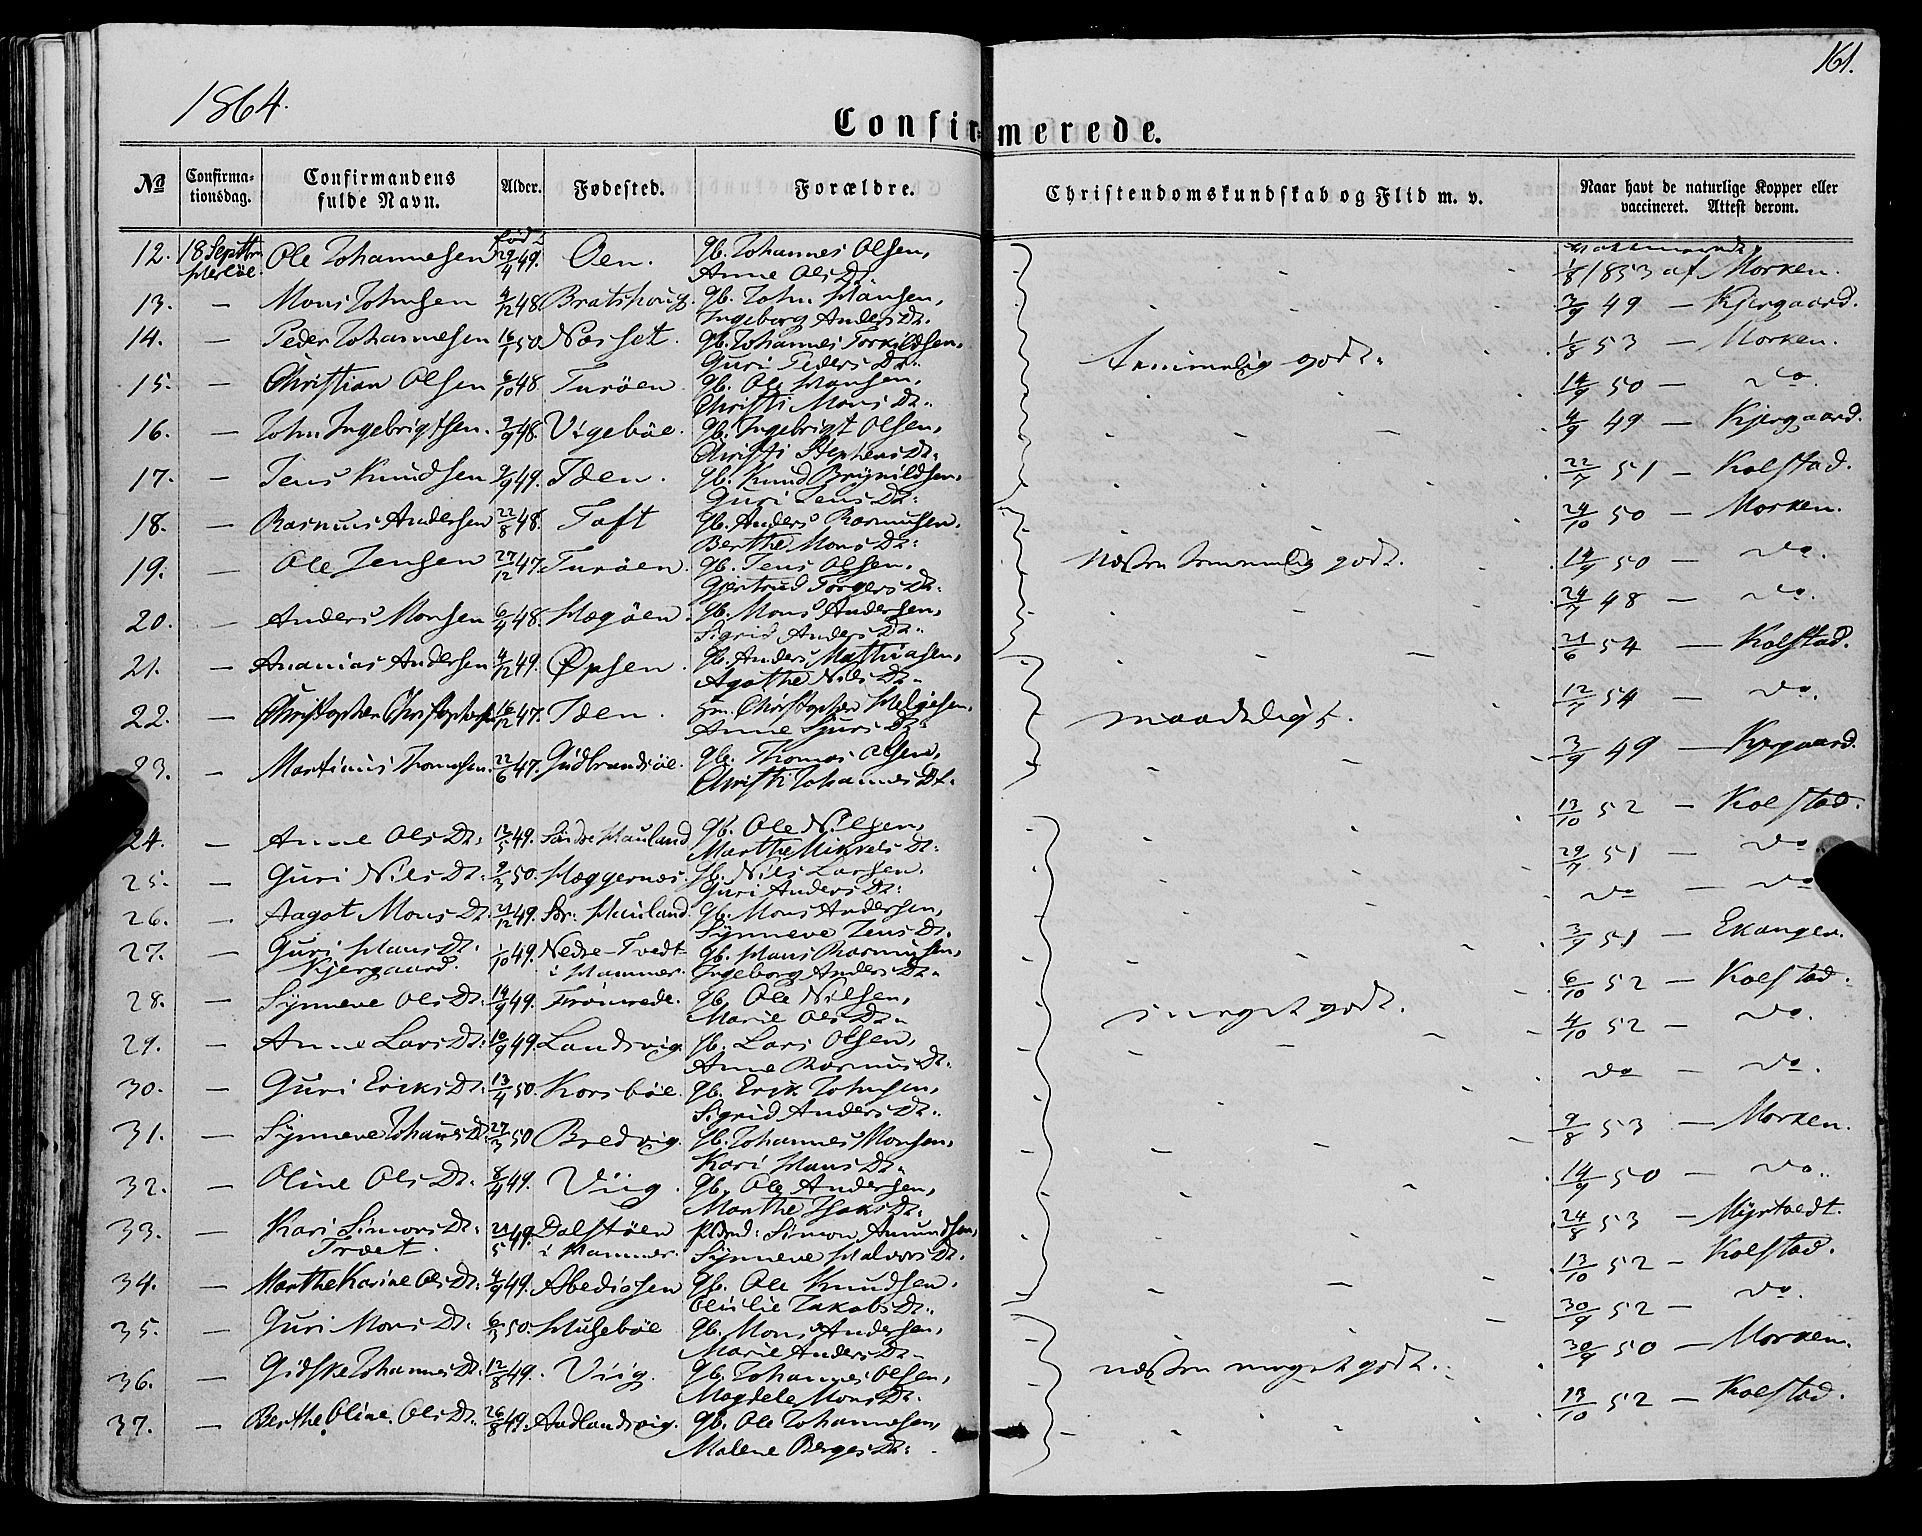 161.
1864.
Confirmerede.
No Confirmationsdag. Confirmandens fulde Navn. Alder. Fødested. Forældre. Christendomskundskab og Flid m. v. Naar havt de naturlige Kopper eller vaccineret. Attest derom.
12. 18 Septbr Ole Johannesen född 29/4 49. Oen. Gb. Johannes Olsen, Anne Ols Dt. 1/8 1853 af Morken.
13. — Mons Johnsen 4/12 48. Bratshoug. Gb. John Hansen, Ingeborg Anders Dt. 3/9 49 — Kjergaard.
14. — Peder Johannesen 16/1 50. Næsset. Gb. Johannes Torkildsen, Guri Peders Dt. temmelig godt. 1/8 53 — Morken.
15. — Christian Olsen 6/10 48. Turöen. Gb. Ole Hansen, Christi Mons Dt. 14/9 50 — do.
16. — John Ingebrigtsen. 3/9 48. Vigebøe. Gb. Ingebrigt Olsen, Christi Stephens Dt. 4/9 49 — Kjergaard.
17. — Jens Knudsen 9/9 49. Iden. Gb. Knud Brynildsen, Guri Jens Dt. 22/7 51 — Kolstad.
18. — Rasmus Andersen 22/8 48. Toft Gb. Anders Rasmusen, Berthe Mons Dt. 24/10 50 — Morken.
19. — Ole Jensen 27/12 47. Turöen. Gb. Jens Olsen, Gjertrud Torgers Dt. næsten temmelig godt. 14/9 50 — do.
20. — Anders Monsen 6/4 48. Hægöen. Gb. Mons Andersen, Sigrid Anders Dt. 24/7 48 — do.
21. — Ananias Andersen 4/12 49. Øpsen. Gb. Anders Mathiasen, Agathe Nils Dt. 21/6 54 — Kolstad.
22. — Christopher Christophersen 16/12 47. Iden. Christopher Helgesen, Anne Sjurs Dt. maadeligt. 12/7 54 — do.
23. — Martinus Thomasen. 22/6 47. Gudbrandsöe. Gb. Thomas Olsen, Christi Johannes Dt. 3/9 49 — Kjergaard.
24. — Anne Ols Dt. 12/5 49. Söndre Hauland Gb. Ole Nilsen, Marthe Mikkels Dt. 13/10 52 — Kolstad.
25. — Guri Nils Dt. 9/3 50. Hæggernæs. Gb. Nils Larsen. Guri Anders Dt. 29/7 51 — do
26. — Aagot Mons Dt. 21/12 49. Sör. Hauland. Gb. Mons Andersen, Synneve Jens Dt. do — do
27. — Guri Hans Dt. Kjergaard. 1/10 49. Nedre-Tvedt i Hammer. Gb. Hans Rasmusen, Ingeborg Anders Dt. 3/7 51 — Ekanger.
28. — Synneve Ols Dt. 14/9 49. Gb. Ole Nilsen, Marie Ols Dt. meget godt. 6/10 52 — Kolstad.
29. — Anne Lars Dt. 10/9 49. Landsvig. Gb. Lars Olsen, Anne Rasmus Dt. 4/10 52 — do.
30. — Guri Eriks Dt. 13/4 50. Korsbøe. Gb. Erik Johnsen, Sigrid Anders Dt. do — do.
31. — Synneve Johans Dt. 27/3 50 Bredvig. Gb. Johannes Monsen, Kari Hans Dt. 9/8 53 — Morken.
32. — Oline Ols Dt. 8/4 49. Viig. Gb. Ole Andersen, Marthe Isaks Dt. 14/9 50 — do.
33. — Kari Simons Dt. Træet. 21/5 49. Dalstöen i Hammer. Simon Amundsen, Synneve Halvors Dt. 24/8 53 — Myrtvedt.
34. — Marthe Karine Ols Dt. 4/9 49. Abediosen Gb. Ole Knudsen, Jakobs Dt. 13/10 52 — Kolstad.
35. — Guri Mons Dt. 6/3 50. Husebøe Gb. Mons Andersen, Marie Anders Dt. 30/9 52 — do.
36. — Gidske Johannes Dt. 12/8 49. Viig. Gb. Johannes Olsen, Magdele Mons Dt. næsten meget godt. 30/9 50 — Morken.
37. — Berthe Oline Ols Dt. 26/8 49. Aadlandsvig. Gb. Ole Johannesen, Malene Berges Dt. 13/10 52 — Kolstad.